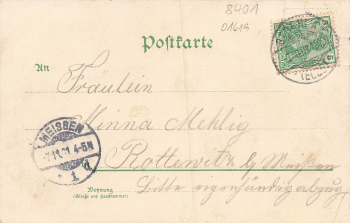 8401
01619
Postkarte
An
Fräulein
Minna Mehlig
MEISSEN
7.11.01 4-5N
1
in Rottewitz b/ Meißen
Wohnung
(Straße und Hausnummer)
Bitte eigenhändig